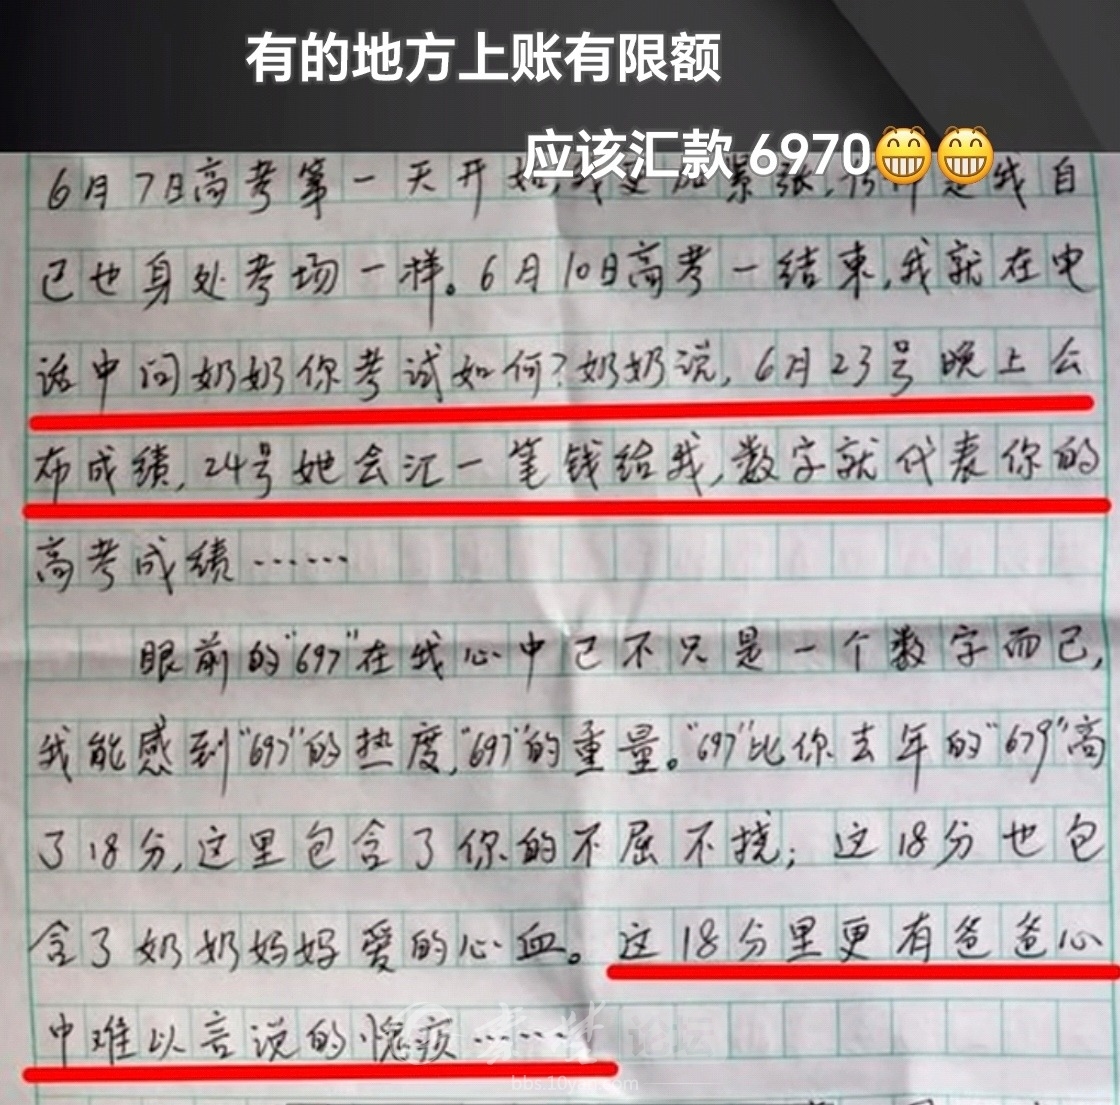 有的地方上账有限额
应该汇款 6970😁😁
6月7日高考第一天开始,我更加紧张,仿佛是我自
己也身处考场一样。6月10日高考一结束,我就在电
话中问奶奶你考试如何?奶奶说,6月23号晚上公
布成绩,24号她会汇一笔钱给我,数字就代表你的
高考成绩……
眼前的"697"在我心中已不只是一个数字而已,
我能感到"697"的热度,"697"的重量。"697"比你去年的"679"高
了18分,这里包含了你的不屈不挠;这18分也包
含了奶奶妈妈爱的心血。这18分里更有爸爸心
中难以言说的愧疚……
论坛